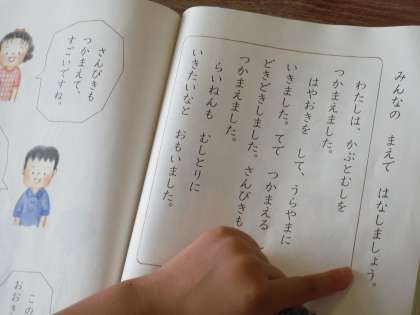 みんなの まえで はなしましょう。
わたしは、かぶとむしを
つかまえました。
はやおきを して、うらやまに
いきました。てで つかまえる
どきどきしました。さんびきも
つかまえました。
らいねんも むしとりに
いきたいなと おもいました。
さんびきも
つかまえて、
すごいですね。
この
おおき